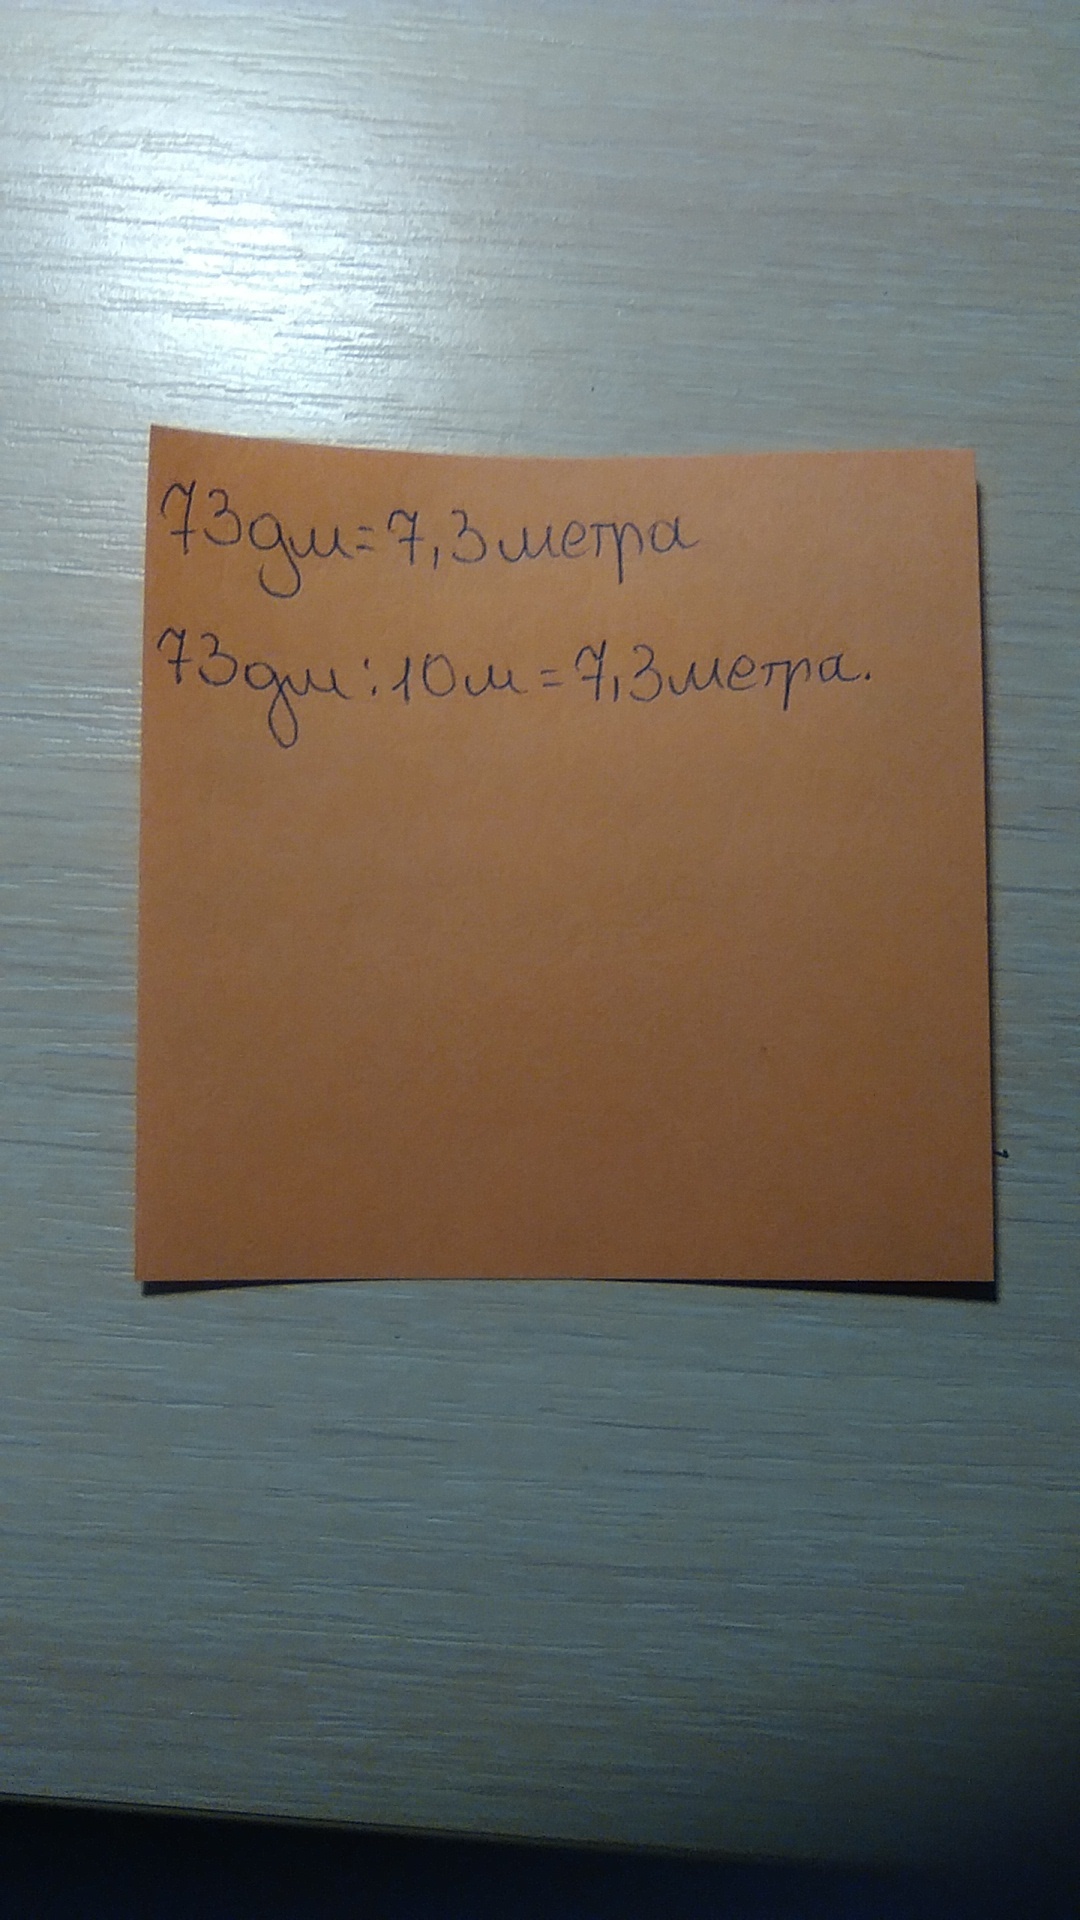 73дм=7,3метра
73дм:10м=7,3метра.